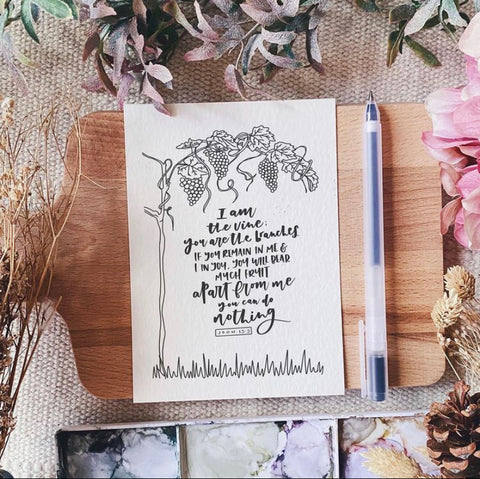 I am
the vine;
you are the branches
IF YOU REMAIN IN ME &
I IN YOU, YOU WILL BEAR
MUCH FRUIT
apart from me
you can do
nothing
JOHN 15:5